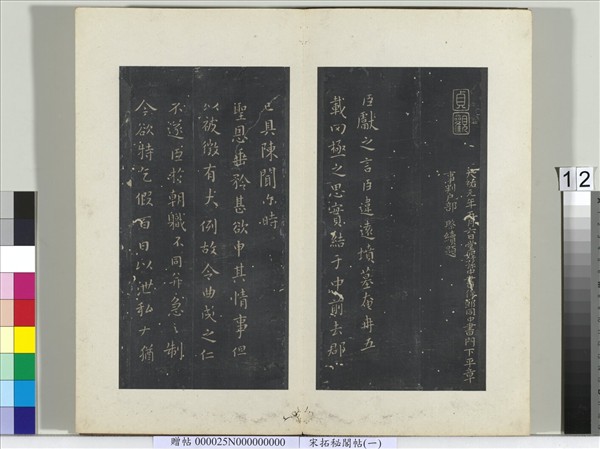 貞觀
元年 同中書門下平章
事判戶部
臣獻之言臣違遠墳墓奄冉五
載罔極之思實結于中前去郡
已具陳聞尔時
聖恩垂矜甚欲申其情事但
以被徵有大例故令曲成之仁
不遂臣於朝職不同并急之制
今欲特乞假百日以泄私 猶
12
贈帖 000025N000000000 宋拓秘閣帖(一)